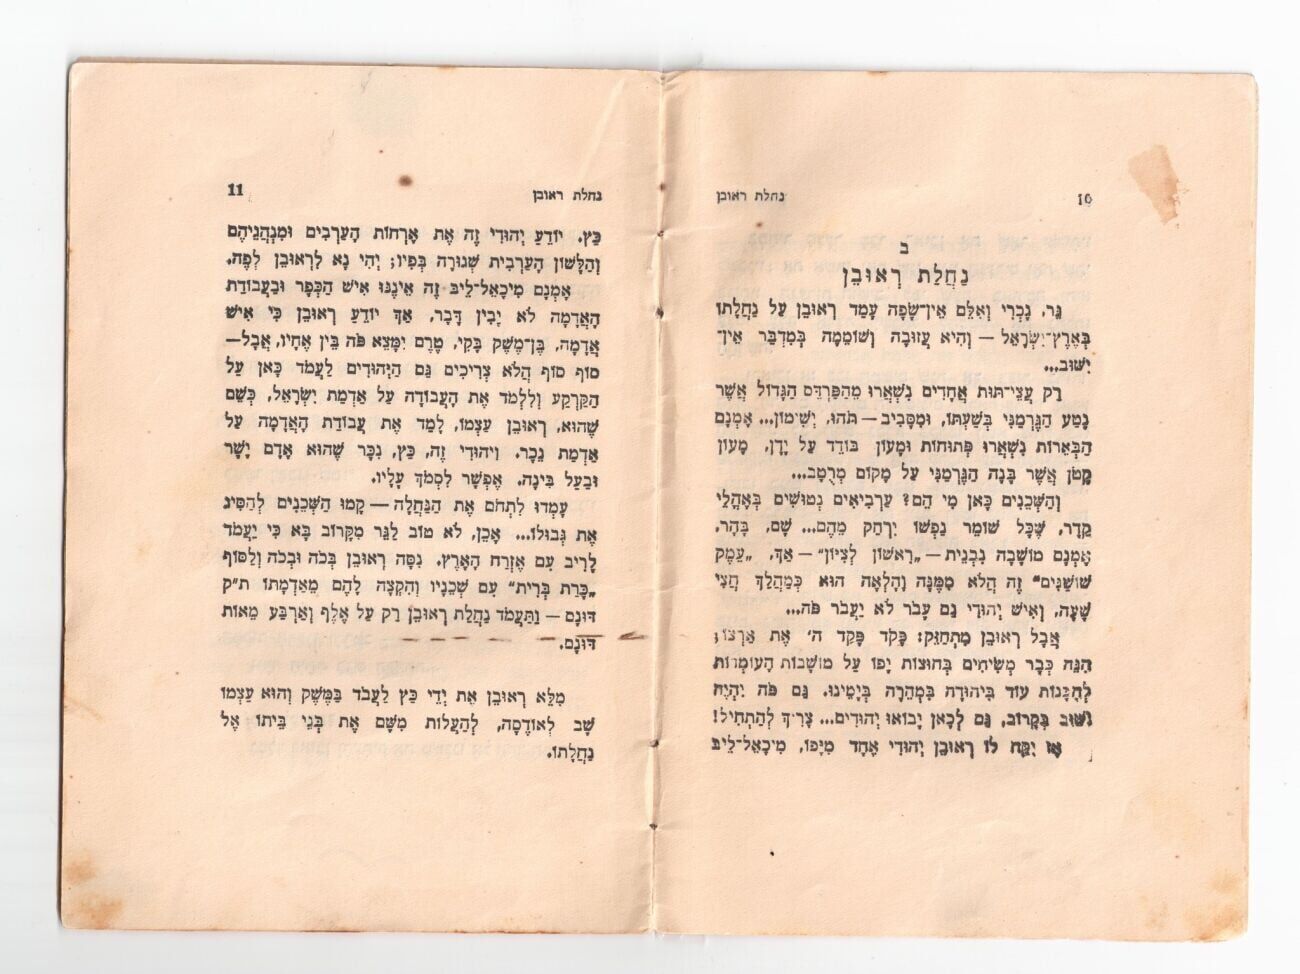 10 נחלת ראובן
ב
נַחֲלַת רְאוּבֵן
גֵּר, נָכְרִי וְאִלֵּם אֵין־שָׂפָה עָמַד רְאוּבֵן עַל נַחֲלָתוֹ
בְּאֶרֶץ־יִשְׂרָאֵל — וְהִיא עֲזוּבָה וְשׁוֹמֵמָה כְּמִדְבַּר אֵין־
יִשּׁוּב...
רַק עֲצֵי־תוּת אֲחָדִים נִשְׁאֲרוּ מֵהַפַּרְדֵּס הַגָּדוֹל אֲשֶׁר
נָטַע הַגֶּרְמַנִּי בְּשַׁעְתּוֹ, וּמִסָּבִיב — תֹּהוּ, יְשִׁימוֹן... אָמְנָם
הַבְּאֵרוֹת נִשְׁאֲרוּ פְּתוּחוֹת וּמָעוֹן בּוֹדֵד עַל יָדָן, מָעוֹן
קָטֹן אֲשֶׁר בָּנָה הַגֶּרְמַנִּי עַל מָקוֹם מְרֻטָּב...
וְהַשְּׁכֵנִים כָּאן מִי הֵם? עַרְבִיאִים נְטוּשִׁים בְּאָהֳלֵי
קֵדָר, שֶׁכָּל שׁוֹמֵר נַפְשׁוֹ יִרְחַק מֵהֶם... שָׁם, בָּהָר,
אָמְנָם מוֹשָׁבָה נִבְנֵית — „רִאשׁוֹן לְצִיּוֹן” — אַךְ, „עֵמֶק
שׁוֹשַׁנִּים” זֶה הֲלֹא מִמֶּנָּה וָהָלְאָה הוּא כְּמַהֲלַךְ חֲצִי
שָׁעָה, וְאִישׁ יְהוּדִי גַּם עָבֹר לֹא יַעֲבֹר פֹּה...
אֲבָל רְאוּבֵן מִתְחַזֵּק: פָּקֹד פָּקַד ה' אֶת אַרְצוֹ;
הִנֵּה כְּבָר מְשִׂיחִים בְּחוּצוֹת יָפוֹ עַל מוֹשָׁבוֹת הָעוֹמְדוֹת
לְהִבָּנוֹת עוֹד בִּיהוּדָה בִּמְהֵרָה בְּיָמֵינוּ. גַּם פֹּה יִהְיֶה
יִשּׁוּב בְּקָרוֹב, גַּם לְכָאן יָבוֹאוּ יְהוּדִים... צָרִיךְ לְהַתְחִיל!
אָז יִקַּח לוֹ רְאוּבֵן יְהוּדִי אֶחָד מִיָּפוֹ, מִיכָאֵל־לֵיבּ
נחלת ראובן 11
כַּץ. יוֹדֵעַ יְהוּדִי זֶה אֶת אָרְחוֹת הָעַרְבִים וּמִנְהֲגֵיהֶם
וְהַלָּשׁוֹן הָעַרְבִית שְׁגוּרָה בְּפִיו; יְהִי נָא לִרְאוּבֵן לְפֶה.
אָמְנָם מִיכָאֵל־לֵיבּ זֶה אֵינֶנּוּ אִישׁ הַכְּפָר וּבַעֲבוֹדַת
הָאֲדָמָה לֹא יָבִין דָּבָר, אַךְ יוֹדֵעַ רְאוּבֵן כִּי אִישׁ
אֲדָמָה, בֶּן־מֶשֶׁק בָּקִי, טֶרֶם יִמָּצֵא פֹּה בֵּין אֶחָיו, אֲבָל —
סוֹף סוֹף הֲלֹא צְרִיכִים גַּם הַיְּהוּדִים לַעֲמֹד כָּאן עַל
הַקַּרְקַע וְלִלְמֹד אֶת הָעֲבוֹדָה עַל אַדְמַת יִשְׂרָאֵל, כְּשֵׁם
שֶׁהוּא, רְאוּבֵן עַצְמוֹ, לָמַד אֶת עֲבוֹדַת הָאֲדָמָה עַל
אַדְמַת נֵכָר. וִיהוּדִי זֶה, כַּץ, נִכָּר שֶׁהוּא אָדָם יָשָׁר
וּבַעַל בִּינָה. אֶפְשָׁר לִסְמֹךְ עָלָיו.
עָמְדוּ לִתְחֹם אֶת הַנַּחֲלָה — קָמוּ הַשְּׁכֵנִים לְהַסִּיג
אֶת גְּבוּלוֹ... אָכֵן, לֹא טוֹב לַגֵּר מִקָּרוֹב בָּא כִּי יַעֲמֹד
לָרִיב עִם אֶזְרַח הָאָרֶץ. נִסָּה רְאוּבֵן בְּכֹה וּבְכֹה וְלַסּוֹף
„כָּרַת בְּרִית” עִם שְׁכֵנָיו וְהִקְצָה לָהֶם מֵאַדְמָתוֹ ת”ק
דּוּנָם — וַתַּעֲמֹד נַחֲלַת רְאוּבֵן רַק עַל אֶלֶף וְאַרְבַּע מֵאוֹת
דּוּנָם.
מִלֵּא רְאוּבֵן אֶת יְדֵי כַּץ לַעֲבֹד בַּמֶּשֶׁק וְהוּא עַצְמוֹ
שָׁב לְאוֹדֶסָה, לְהַעֲלוֹת מִשָּׁם אֶת בְּנֵי בֵיתוֹ אֶל
נַחֲלָתוֹ.